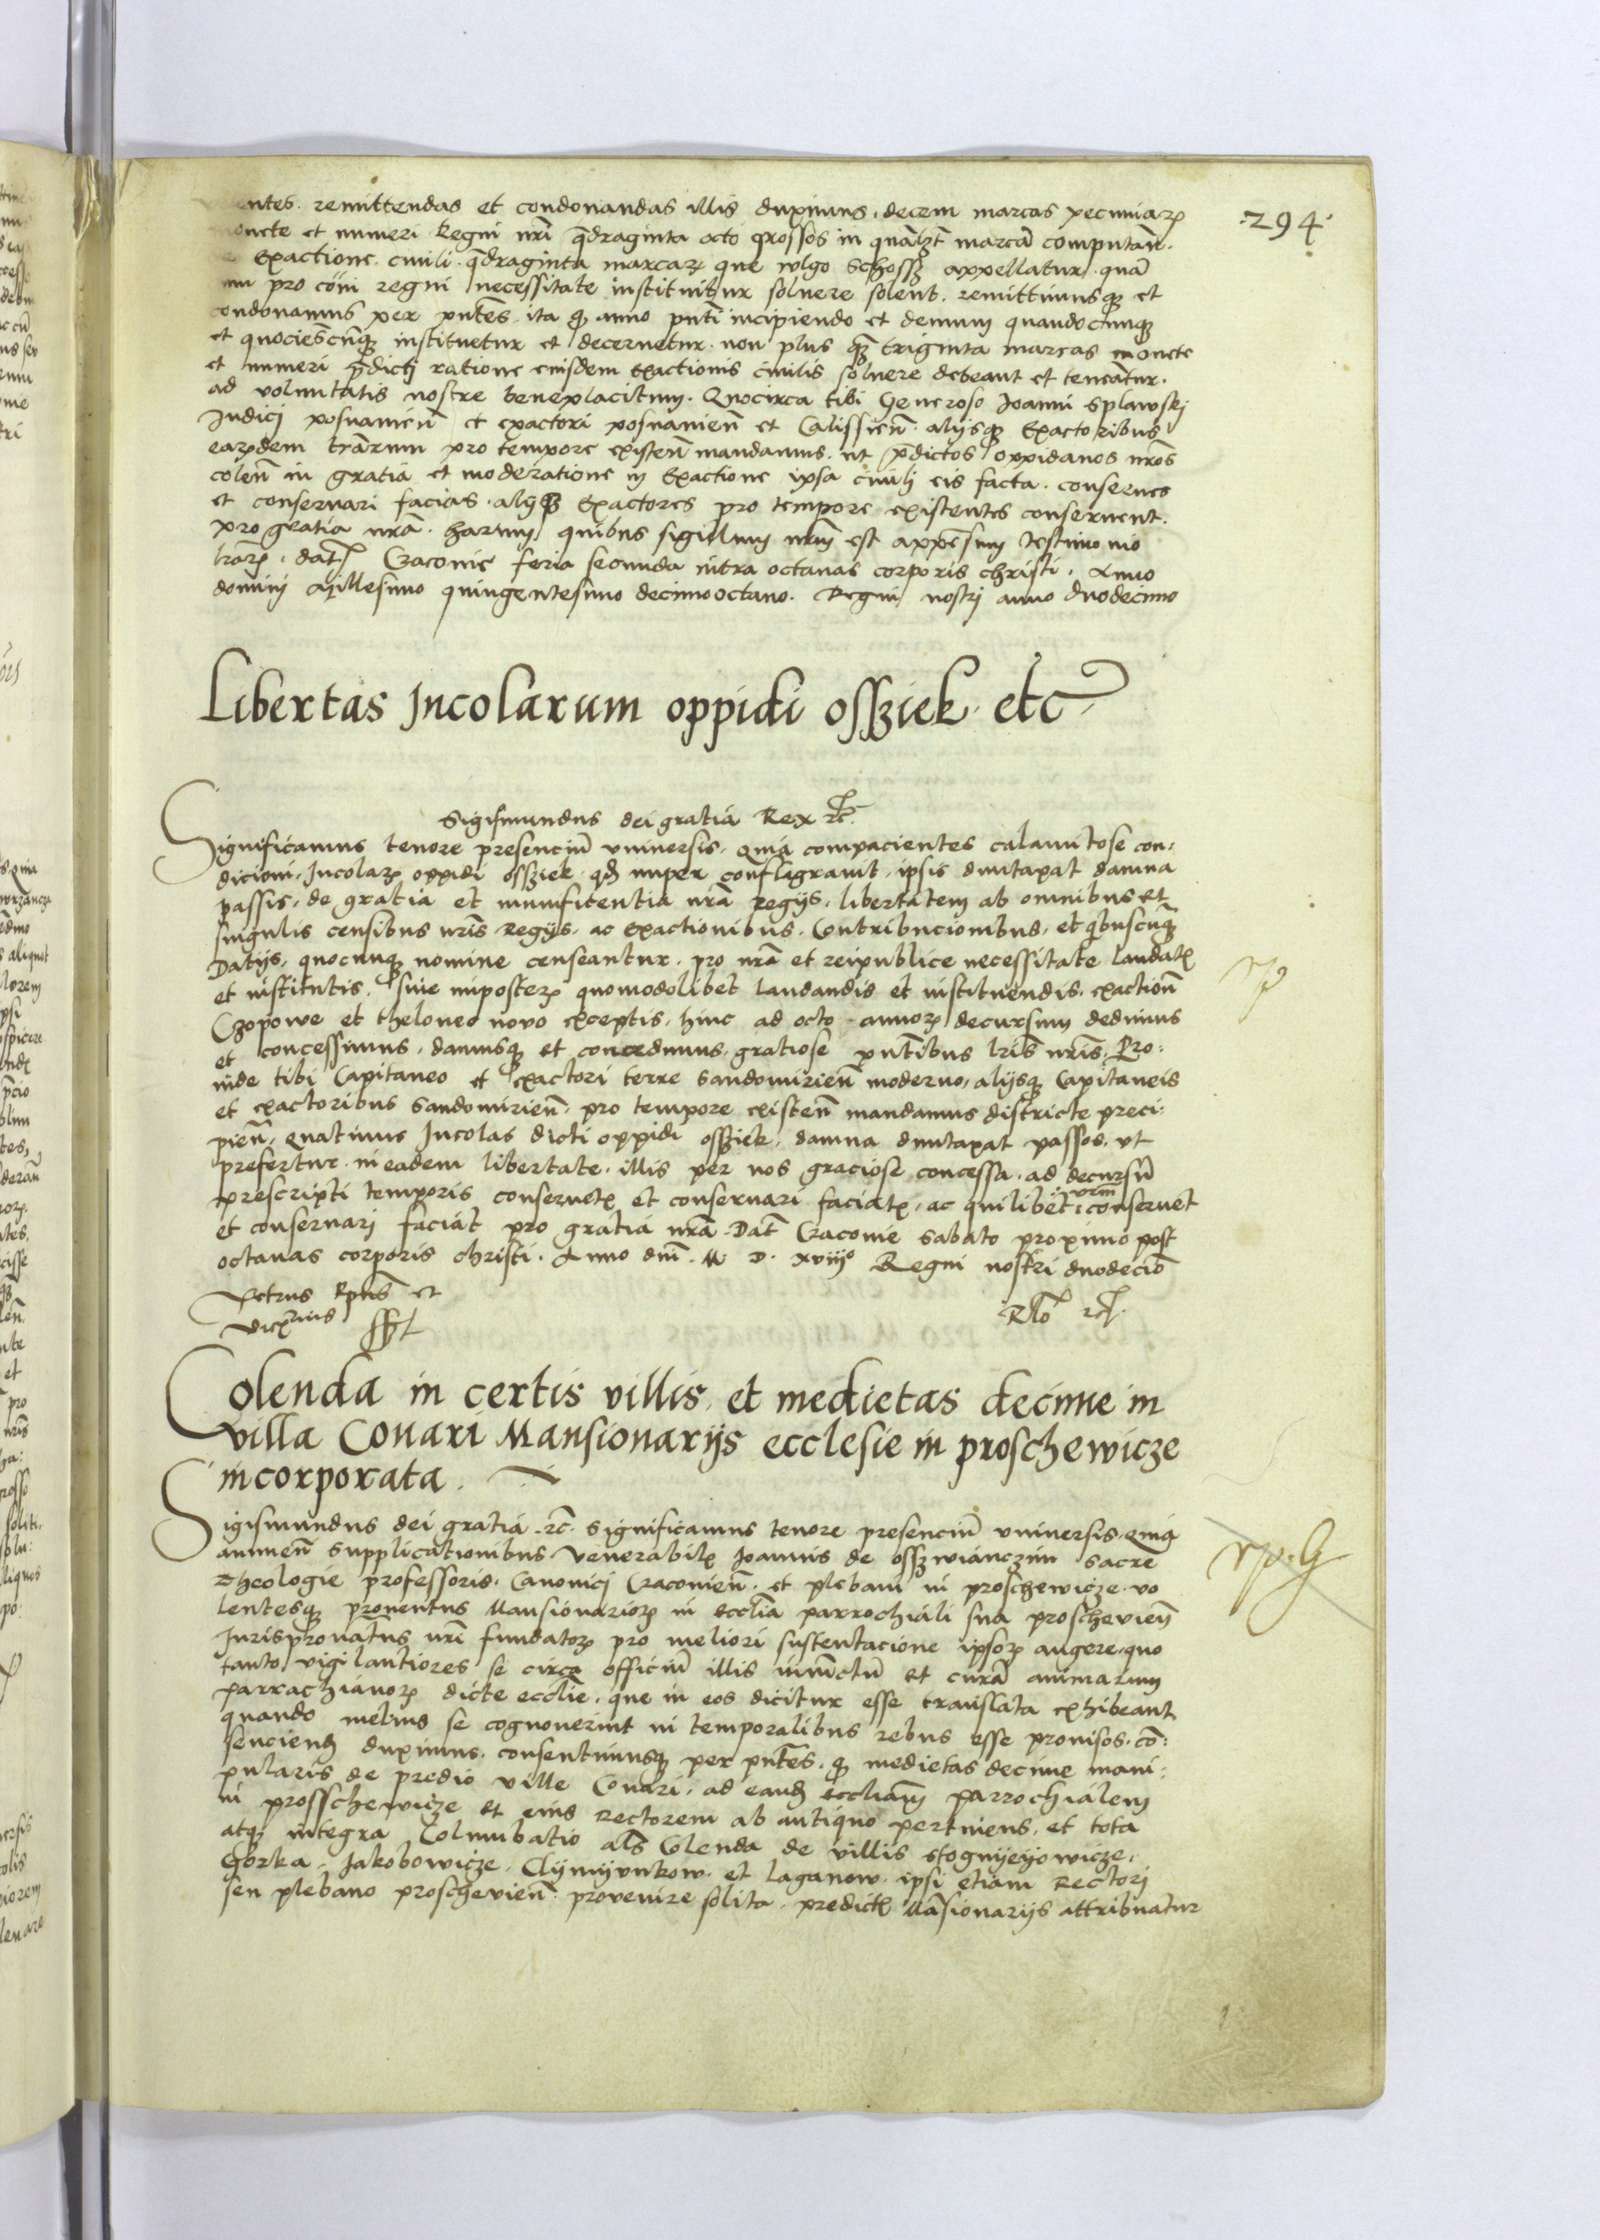 ·294·
entes. remittendas et condonandas illis duximus. decem marcas pecuniarꝫ
monete et numeri Regni nrĩ q̃draginta octo grossos in quãlꝫt marcã computañ.
Exactione ciuili q̃draginta marcarꝫ que wlgo Schossz appellatur. quã
pro cõi regni necessitate instituitur soluere solent. remittimusqꝫ et
condonamus per pñtes. ita ꝙ anno pñti incipiendo et demum quandocunqꝫ
et quociescũqꝫ instituetur et decernetur. non plus q̃ꝫ triginta marcas monete
et numeri p̃dicti ratione eiusdem exactionis ciuilis soluere debeant et teneãtur.
ad voluntatis nostre beneplacitum. Quocirca tibi Generoso Joanni Splawskj
Judicj posnanień et exactori posnanień et Calissień. alijsqꝫ Exactoribus
earũdem trãrum pro tempore existeñ mandamus. ut p̃dictos oppidanos nr̃os
coleñ in gratia et moderatione in Exactione ipsa ciuilj eis facta. conserues
et conseruari facias. alijqꝫ Exactores pro tempore existentes conseruent.
pro gratia nrã. harum quibus sigillum nrũm est appẽsum testimonio
lrãrꝫ. dat̃ Cracouie feria secunda intra octauas corporis christi. Anno
domini Millesimo quingentesimo decimooctauo. Regni nostrj anno duodecimo
Libertas Jncolarum oppidi ossziek etc
Sigismundus dei gratia Rex ⁊c̃.
Significamus tenore presenciũ vniuersis. Quia compacientes calamitose con-
dicioni. Jncolarꝫ oppidi ossziek. qđ nuper conflagrauit. ipsis dumtaxat damna
passis. de gratia et munificentia nrã regijs. libertatem ab omnibus et
singulis censibus nrĩs Regijs. ac exactionibus. Contribucionibus. et q̃buscũqꝫ
Datijs. quocunqꝫ nomine censeantur. pro nrã et reipublice necessitate laudatꝭ
et institutis. siue inposterꝫ quomodolibet laudandis et instituendis. exactioñ
Czopowe et theloneo nouo exceptis. hinc ad octo annorꝫ decursum dedimus
et concessimus. damusqꝫ et concedimus. gratiose pñtibus lrĩs nrĩs. Pro-
inde tibi Capitaneo et exactori terre Sandomirień moderno. alijsqꝫ Capitaneis
et exactoribus Sandomirień. pro tempore existeñ mandamus districte preci-
pień. Quatinus Jncolas dicti oppidi ossziek. damna dumtaxat passos. vt
prefertur. in eadem libertate. illis per nos graciose concessa. ad decursũ
prescripti temporis conseruetꝭ et conseruari faciatꝭ. ac quilibet vrm̃ conseruet
et conseruarj faciat pro gratia nrã. Dat̃ Cracouie sabato proximo post
octauas corporis christi. Anno dnĩ. M. D. xviijº Regni nostri duodeciõ
Petrus Epũs et
Vicꝫrius sszt
Rlõ ⁊c̃.
Colenda in certis villis. et medietas decime in
Villa Conari Mansionarijs ecclesie in proschewicze
incorporata.
Sigismundus dei gratia ⁊c̃. Significamus tenore presenciũ vniuersis. Quia
annueñ supplicationibus Venerabilꝭ Joannis de osszwianczim sacre
Theologie professoris. Canonicj Cracouień. et plebani in proschewicze. vo
lentesqꝫ prouentus Mansionariorꝫ in ecclĩa parrochiali sua proscheuień
Jurispronatus nrĩ fundatorꝫ pro meliori sustentacione ipsorꝫ augere. quo
tanto vigilantiores se circa officiũ illis iniũctũ et curã animarum
parrachianorꝫ dicte ecclĩe. que in eos dicitur esse translata exhibeant
quando melius se cognouerint in temporalibus rebus esse prouisos. cõ-
senciend̃ duximus. consentimusqꝫ per pñtes. ꝙ medietas decime mani-
pularis de predio ville Conari. ad eand̃ eccliam parrochialem
in prosschewicze et eius Rectorem ab antiquo pertinens. et tota
atqꝫ integra Columbatio als̃ Colenda de villis stognijeyowicze.
Gorka. Jakobowicze. Clijmijuntow. et Laganow. ipsi etiam Rectorj
seu plebano proscheuień. prouenire solita. predictꝭ Mãsionarijs attribuatur